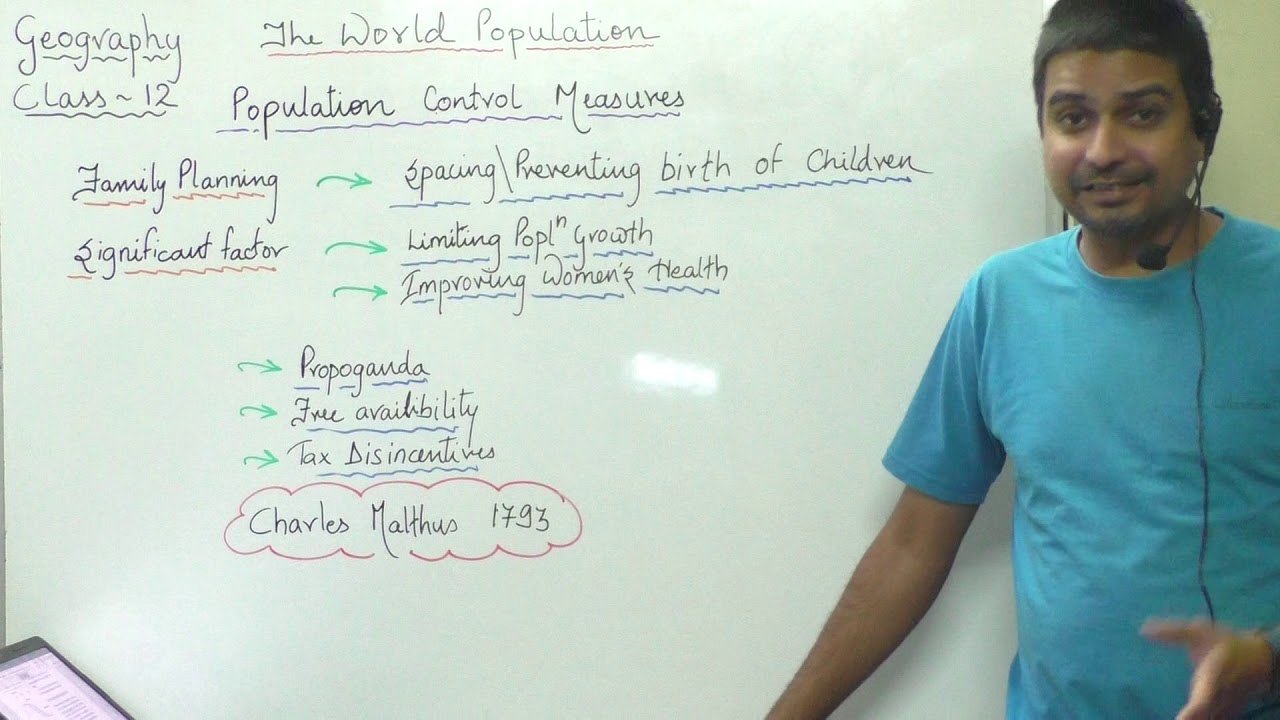 Geography The World Population
Class ~ 12 Population Control Measures
Family Planning → Spacing\Preventing birth of Children
Significant factor → Limiting Popln Growth
→ Improving Women's Health
→ Propoganda
→ Free availibility
→ Tax Disincentives
Charles Malthus 1793